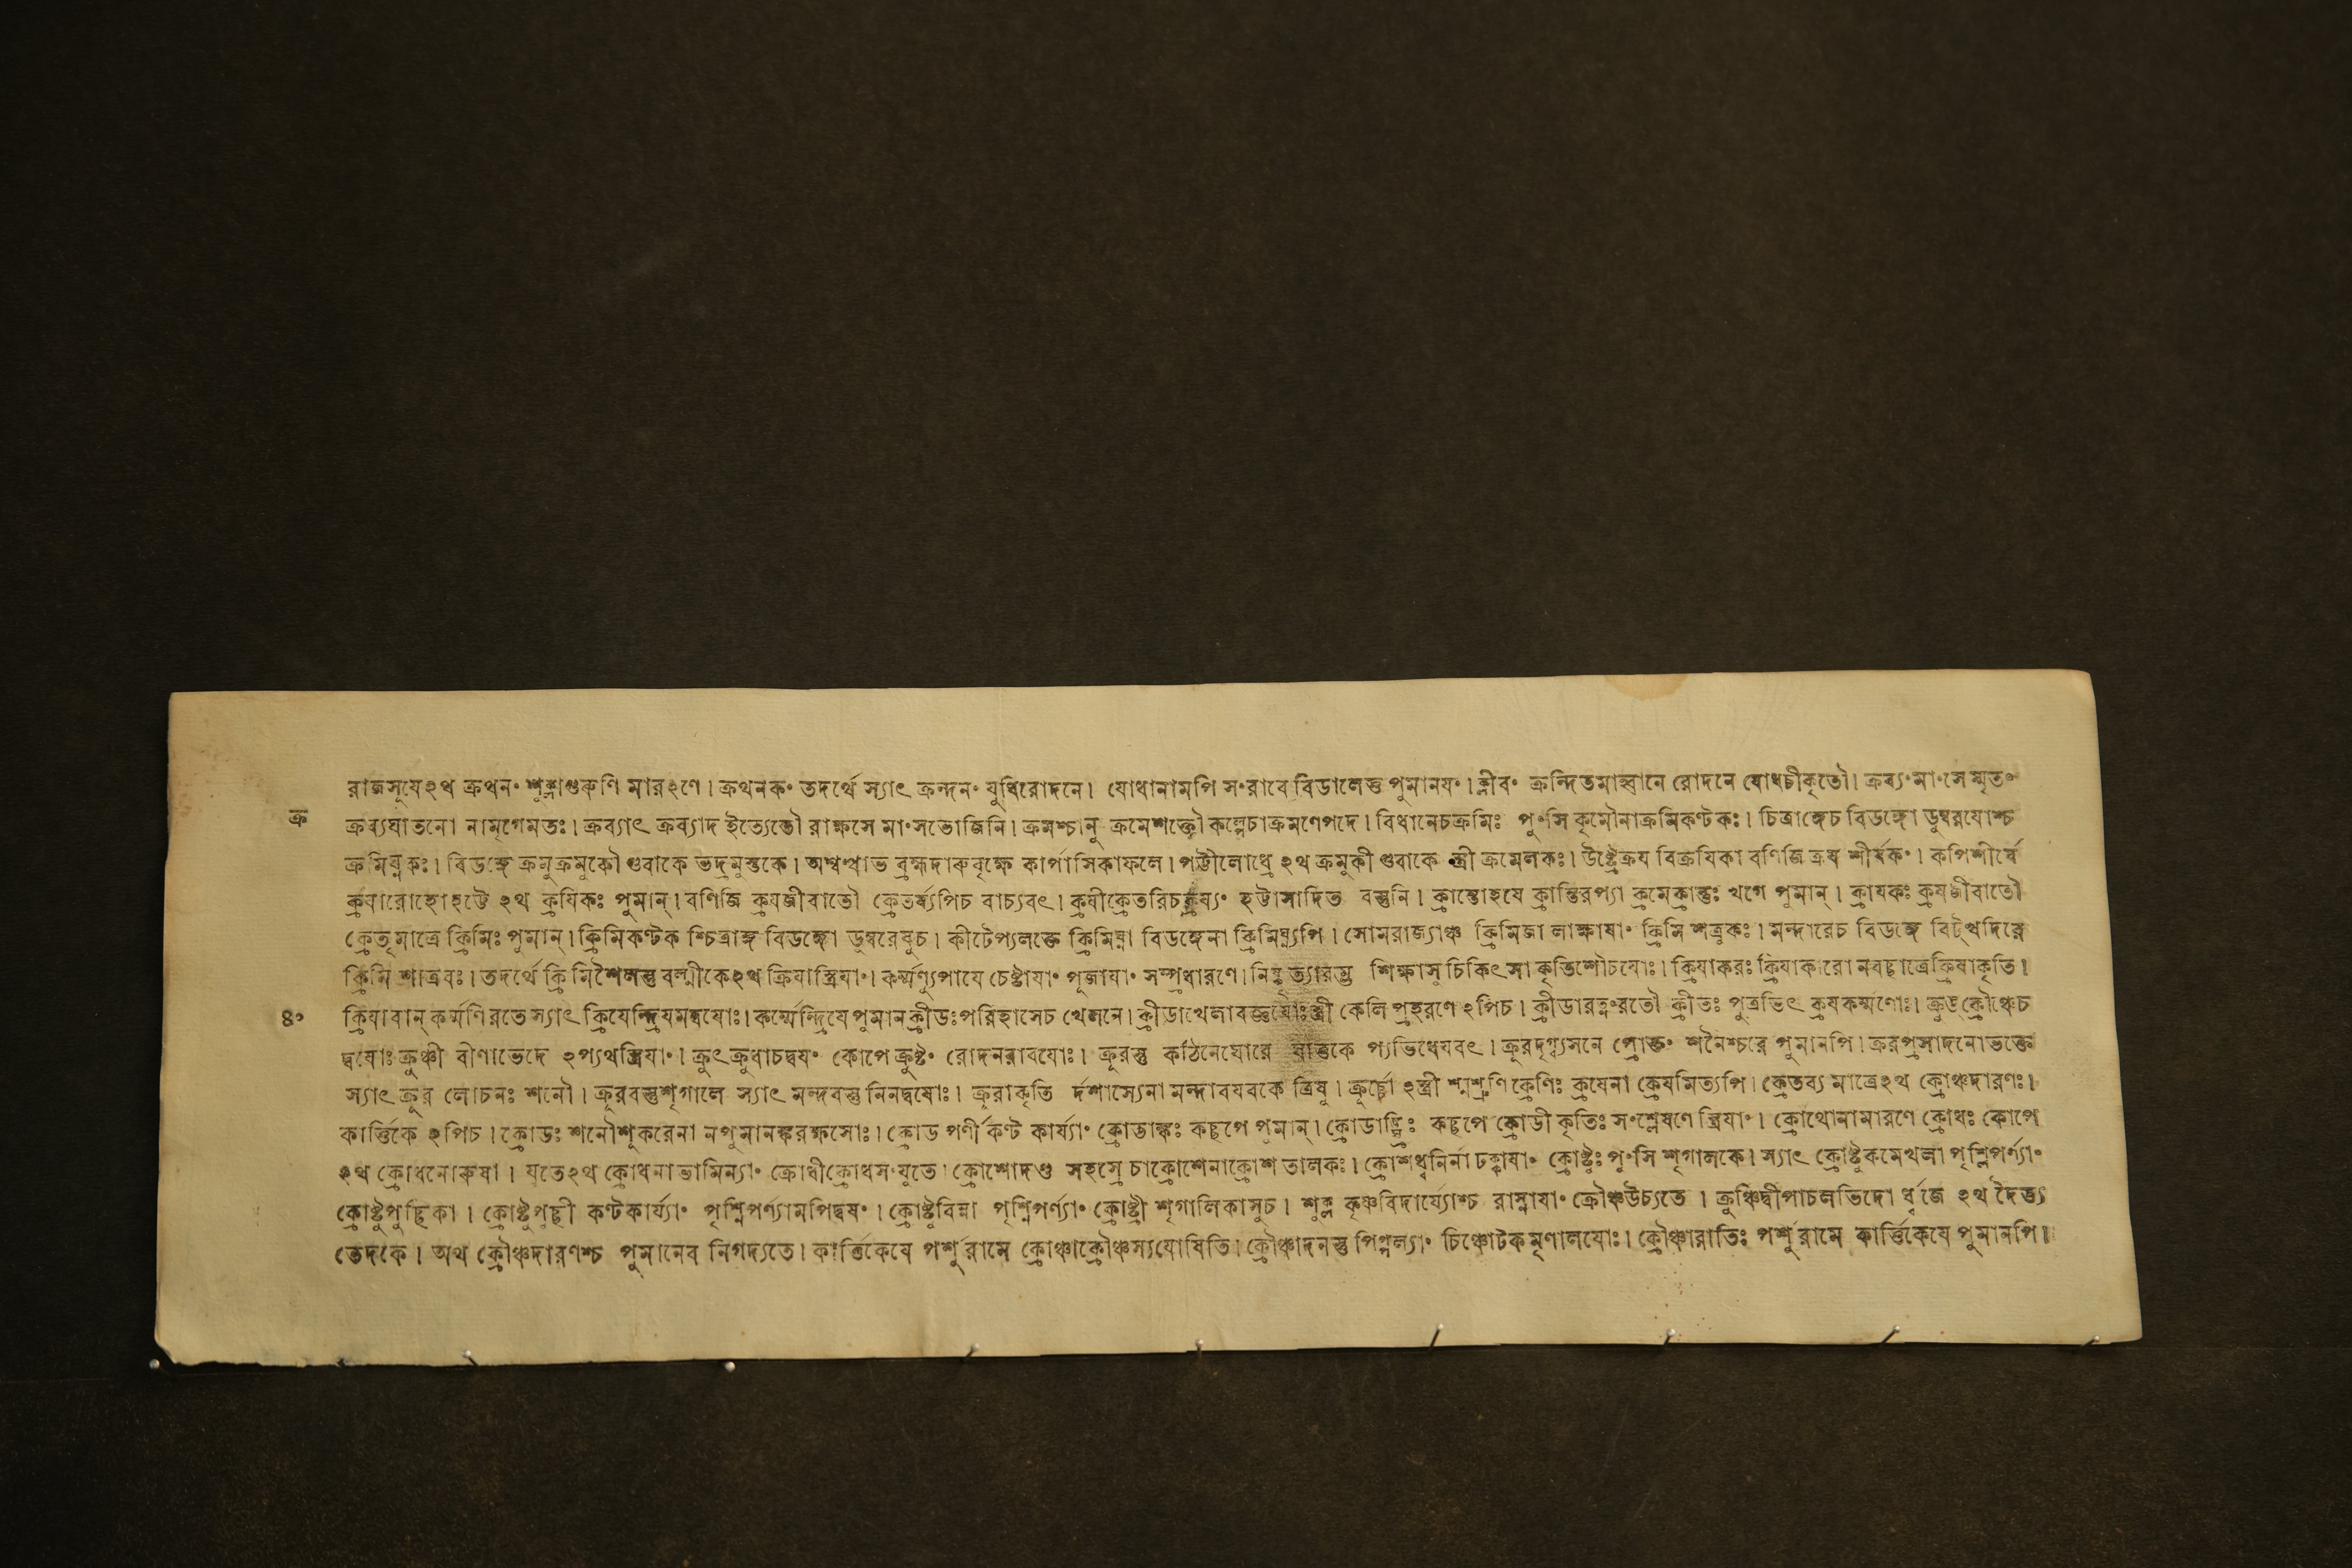 রাজসূযেঽথ ক্রথনং শূক্লাগুরুণি মারঽণে। ক্রথনকং তদর্থে স্যাৎ ক্রন্দনং যুধিরোদনে। যোধানামপি সংরাবে বিডালেতু পুমানযং। ক্লীবং ক্রন্দিতমাহ্বানে রোদনে যোধচীকৃতৌ। ক্রব্যং মাংসে স্মৃতং
ক্র
ক্রব্যঘাতনো নামৃগেমতঃ। ক্রব্যাৎ ক্রব্যাদ ইত্যেতৌ রাক্ষসে মাংসভোজিনি। ক্রমশ্চানু ক্রমেশক্তৌ কল্পেচাক্রমণেপদে। বিধানেচক্রমিঃ পুংসি কৃমৌনাক্রমিকণ্টকঃ। চিত্রাঙ্গেচ বিডঙ্গো ডুম্বরযোশ্চ
ক্রমিঘ্নকঃ। বিডঙ্গে ক্রমুক্রমুকৌ গুবাকে ভদ্রমুস্তকে। অশ্বত্থাভ ব্রহ্মদারুবৃক্ষে কার্পাসিকাফলে। পট্টীলোধ্রে ঽথ ক্রমুকী গুবাকে স্ত্রী ক্রমেলকঃ। উষ্ট্রেক্রয বিক্রযিকা বণিজি ক্রয শীর্ষকং। কপিশীর্ষে
ক্রযারোহোহট্টে ঽথ ক্রযিকঃ পুমান্। বণিজি ক্রযজীবাতৌ ক্রেতর্য্যপিচ বাচ্যবৎ। ক্রযীক্রেতরিচক্রয্যং হট্টাসাদিত বস্তুনি। ক্রান্তোহযে ক্রান্তিরপ্যা ক্রমেক্রান্তুঃ খগে পুমান্। ক্রাযকঃ ক্রযজীবাতৌ
ক্রেতৃমাত্রে ক্রিমিঃ পুমান্। ক্রিমিকণ্টক শ্চিত্রাঙ্গ বিডঙ্গো ডুম্বরেষুচ। কীটেপ্যলক্তে ক্রিমিঘ্না বিডঙ্গেনা ক্রিমিঘ্ন্যপি। সোমরাজ্যাঞ্চ ক্রিমিজা লাক্ষাযাং ক্রিমি শত্রুকঃ। মন্দারেচ বিডঙ্গে বিট্খদিরে
ক্রিমি শাত্রবঃ। তদর্থে ক্রিমিশৈলস্তু বল্মীকেঽথ ক্রিযাস্ত্রিযাং। কর্ম্মণ্যুপাযে চেষ্টাযাং পূজাযাং সম্প্রধারণে। শিক্ষাসু চিকিৎসা কৃতিশৌচযোঃ। ক্রিযাকরঃ ক্রিযাকারো নবচ্ছাত্রেক্রিযাকৃতি।
৪০
ক্রিযাবান্ কর্ম্মণিরতে স্যাৎ ক্রিযেন্দ্রিযমদ্বযোঃ। কর্ম্মেন্দ্রিযে পুমানক্রীডঃপরিহাসেচ খেলনে। ক্রীডাখেলাবজ্ঞযোঃস্ত্রী কেলি প্রহরণে ঽপিচ। ক্রীডারত্নংরতৌ ক্রীতঃ পুত্রভিৎ ক্রযকর্ম্মণোঃ। ক্রুঙ্ক্রৌঞ্চেচ
দ্বযোঃ ক্রুঞ্চী বীণাভেদে ঽপ্যথস্ত্রিযাং। ক্রুৎক্রুধাচদ্বযং কোপে ক্রুষ্টং রোদনরাবযোঃ। ক্রূরস্তু কঠিনেঘোরে প্যভিধেযবৎ। ক্রূরদৃগ্ব্যসনে প্রোক্তং শনৈশ্চরে পুমানপি। ক্রূরপ্রসাদনোভক্তে
স্যাৎ ক্রূর লোচনঃ শনৌ। ক্রূরবস্তুশৃগালে স্যাৎ মন্দবস্তু নিনদ্বযোঃ। ক্রূরাকৃতি র্দশাস্যেনা মন্দাবযবকে ত্রিষু। ক্রূর্চ্চো ঽস্ত্রী শ্মশ্রুণি ক্রেণিঃ ক্রযেনা ক্রেযমিত্যপি। ক্রেতব্য মাত্রেঽথ ক্রোঞ্চদারণঃ।
কার্ত্তিকে ঽপিচ। ক্রোডঃ শনৌশূকরেনা নপুমানঙ্করক্ষসোঃ। ক্রোড পর্ণী কণ্ট কার্য্যাং ক্রোডাঙ্কঃ কচ্ছপে পুমান্। ক্রোডাঙ্ঘ্রিঃ কচ্ছপে ক্রোডী কৃতিঃ সংশ্লেষণে স্ত্রিযাং। ক্রোথোনামারণে ক্রোধঃ কোপে
ঽথ ক্রোধনোরুষা। যুতেঽথ ক্রোধনাভামিন্যাং ক্রোধীক্রোধসংযুতে। ক্রোশোদণ্ড সহস্রে চাক্রোশেনাক্রোশ তালকঃ। ক্রোশধ্বনির্না ঢক্কাযাং ক্রোষ্টুঃ পুংসি শৃগালকে। স্যাৎ ক্রোষ্টুকমেখলা পৃশ্নিপর্ণ্যাং
ক্রোষ্টুপুচ্ছিকা। ক্রোষ্টুপুচ্ছী কণ্টকার্য্যাং পৃশ্নিপর্ণ্যামপিদ্বযং। ক্রোষ্টুবিন্না পৃশ্নিপর্ণ্যাং ক্রোষ্ট্রী শৃগালিকাসুচ। শুক্ল কৃষ্ণবিদার্য্যোশ্চ রাস্নাযাং ক্রৌঞ্চউচ্যতে। ক্রুঞ্চিদ্বীপাচলভিদো র্ধ্বজে ঽথ দৈত্য
ভেদকে। অথ ক্রৌঞ্চদারণশ্চ পুমানেব নিগদ্যতে। কার্ত্তিকেযে পর্শুরামে ক্রোঞ্চাক্রৌঞ্চস্যযোষিতি। ক্রৌঞ্চাদনস্তু পিপ্পল্যাং চিঞ্চোটকমৃণালযোঃ। ক্রৌঞ্চারাতিঃ পর্শুরামে কার্ত্তিকেযে পুমানপি।